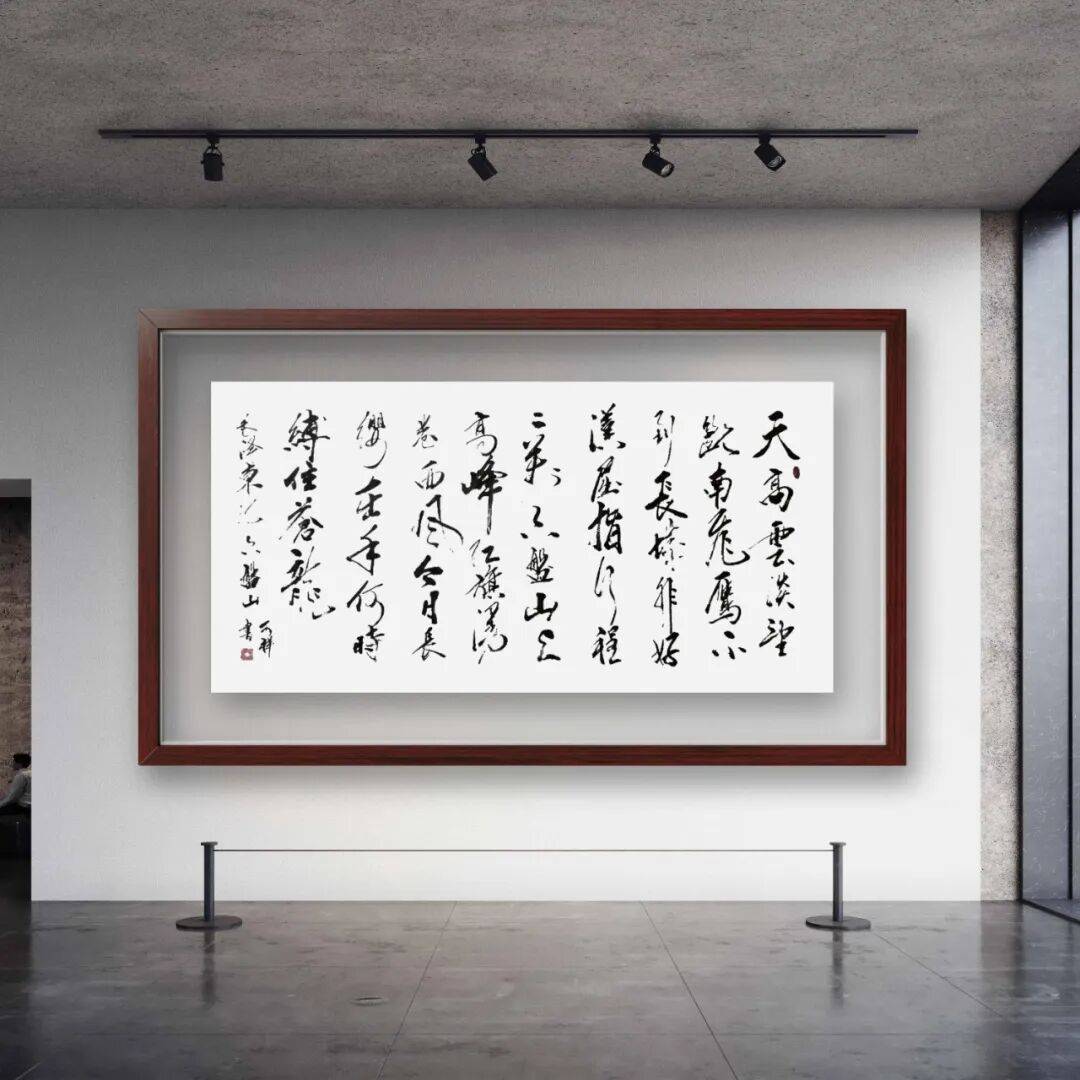 天高雲淡望
斷南飛鴈不
到長城非好
漢屈指行程
二萬六盤山上
高峰紅旗漫
卷西風今日長
纓在手何時
縛住蒼龍
毛澤東詞六盤山 書